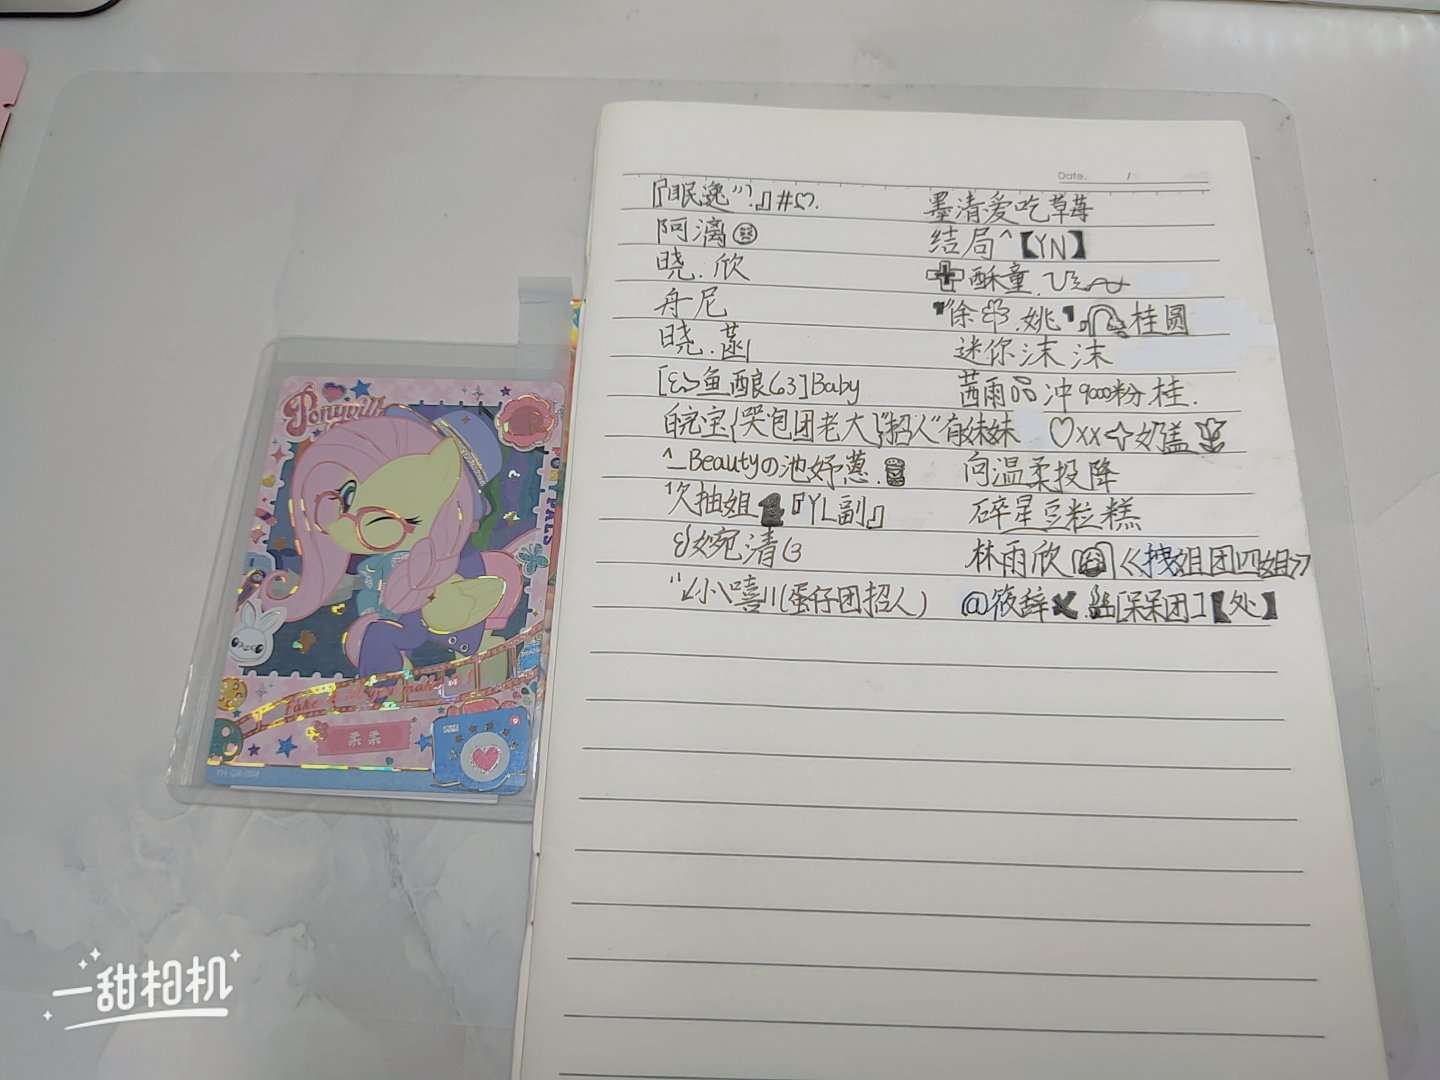 Date. /
『眠逸"?.』#♡.
阿漓
晓.欣
舟尼
晓.菡
[ε鱼酿63]Baby
皖宝{哭包团老大}"招人"有妹妹
^_Beautyの池妤蔥.
次抽姐1『YL副』
婉清
小嘻(蛋仔团招人)
墨清爱吃草莓
结局^【YN】
酥童.
"徐.姚"桂圆
迷你沫沫
茜雨 冲9000粉.桂.
♡xx✧奶盖
向温柔投降
碎星豆粒糕
林雨欣《拽姐团四姐》
@筱辞[呆呆团]【处】
Ponyvill
PONY PALS
柔柔
一甜相机